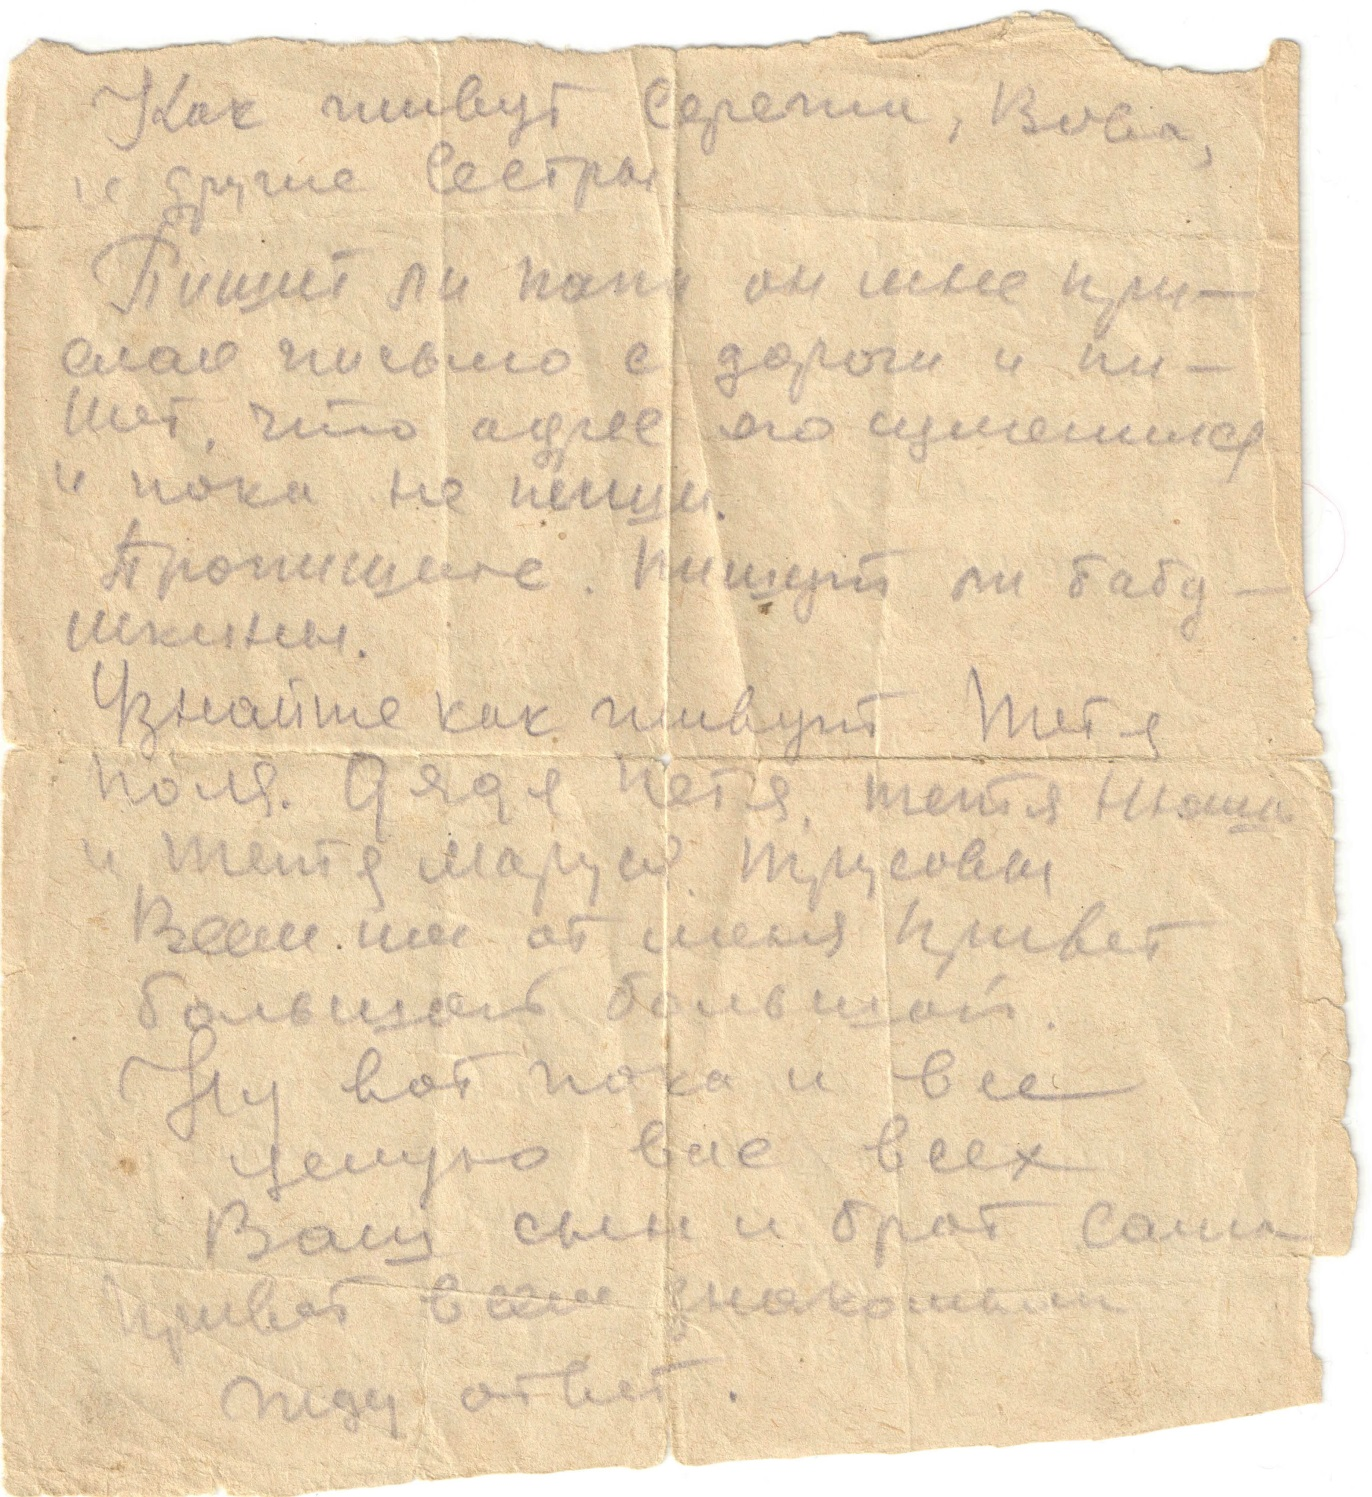 Как живут Сережи, Вова,
и другие Сестры
Пишет ли папа он мне при-
слал письмо с дороги и пи-
шет, что адрес его изменился
и пока не пиши.
Пропишите. Пишут ли бабу-
шкины.
Узнайте как живут Тетя
Поля. Дядя Петя, тетя Нюша
и тетя Маруся. Трусовы
Всем им от меня привет
большой большой.
Ну вот пока и все
целую вас всех
Ваш сын и брат Саша
привет всем знакомым
жду ответ.